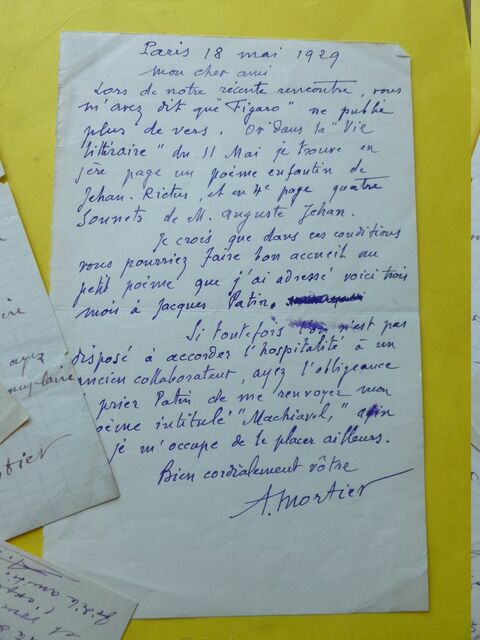 Paris 18 mai 1929
Mon cher ami
Lors de notre récente rencontre, vous
m'avez dit que "Figaro" ne publie
plus de vers. Or dans la "Vie
littéraire" du 11 Mai je trouve en
1ère page un poème enfantin de
Jehan. Rictus, et en 4e page quatre
Sonnets de M. Auguste Jehan.
Je crois que dans ces conditions
vous pourriez faire bon accueil au
petit poème que j'ai adressé voici trois
mois à Jacques Patin.
Si toutefois l'on n'est pas
disposé à accorder l'hospitalité à un
ancien collaborateur, ayez l'obligeance
prier Patin de me renvoyer mon
poème intitulé "Machiavel," afin
je m'occupe de le placer ailleurs.
Bien cordialement vôtre
A. Mortier
ayez
mplaire
rtier